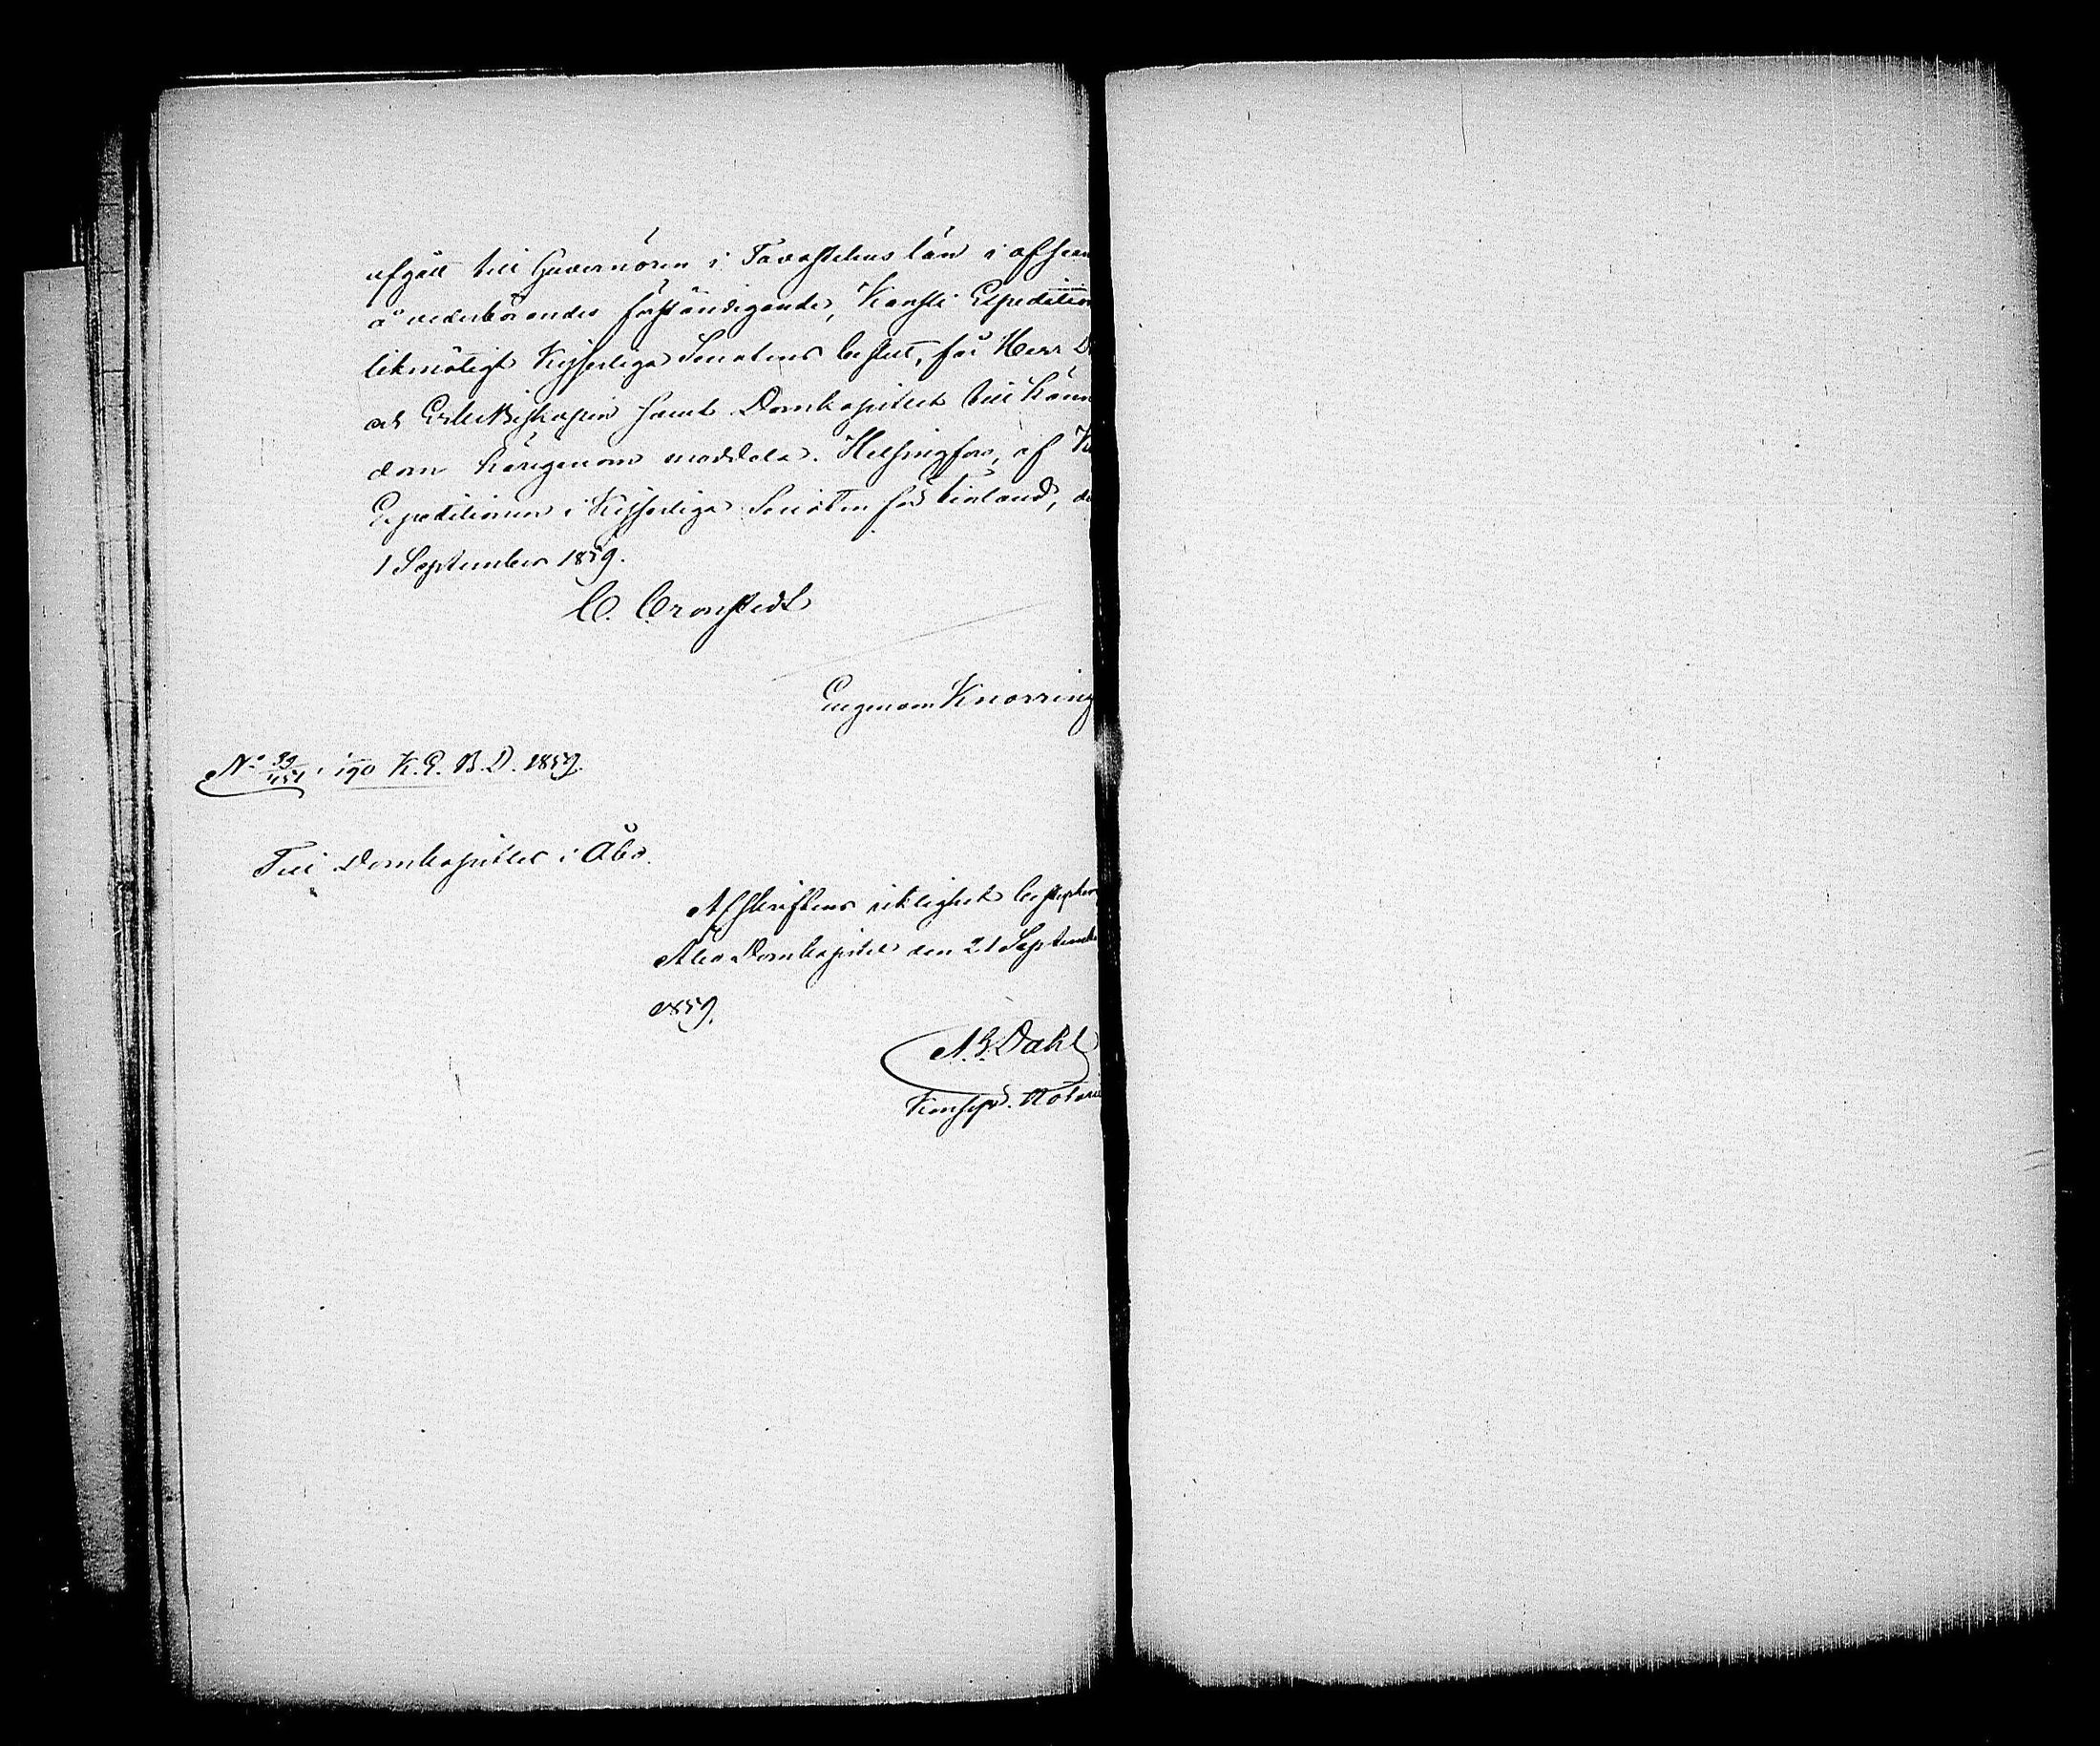 afgått till Guvernören i Tavastehus län i afseen
å vederbörandes förständigande, Kansli Expedition
likmätigt Kejserliga Senatens beslut, för Herr D
och ErkeBiskopen samt Domkapitlet till känne
dom härigenom meddela. Helsingfors, af K
Expeditionen i Kejserliga Senaten för Finland, de
1 September 1859.
C. Cronstedt
Eugenom Knorring
No 39/451 i 190 K.E. B.D. 1859.
Till Domkapitlet i Åbo.
Afskriftens riktighet bestyrker,
Åbo Domkapitel den 21 Septembe
1859.
A. G. Dahl
Konsist. Notari